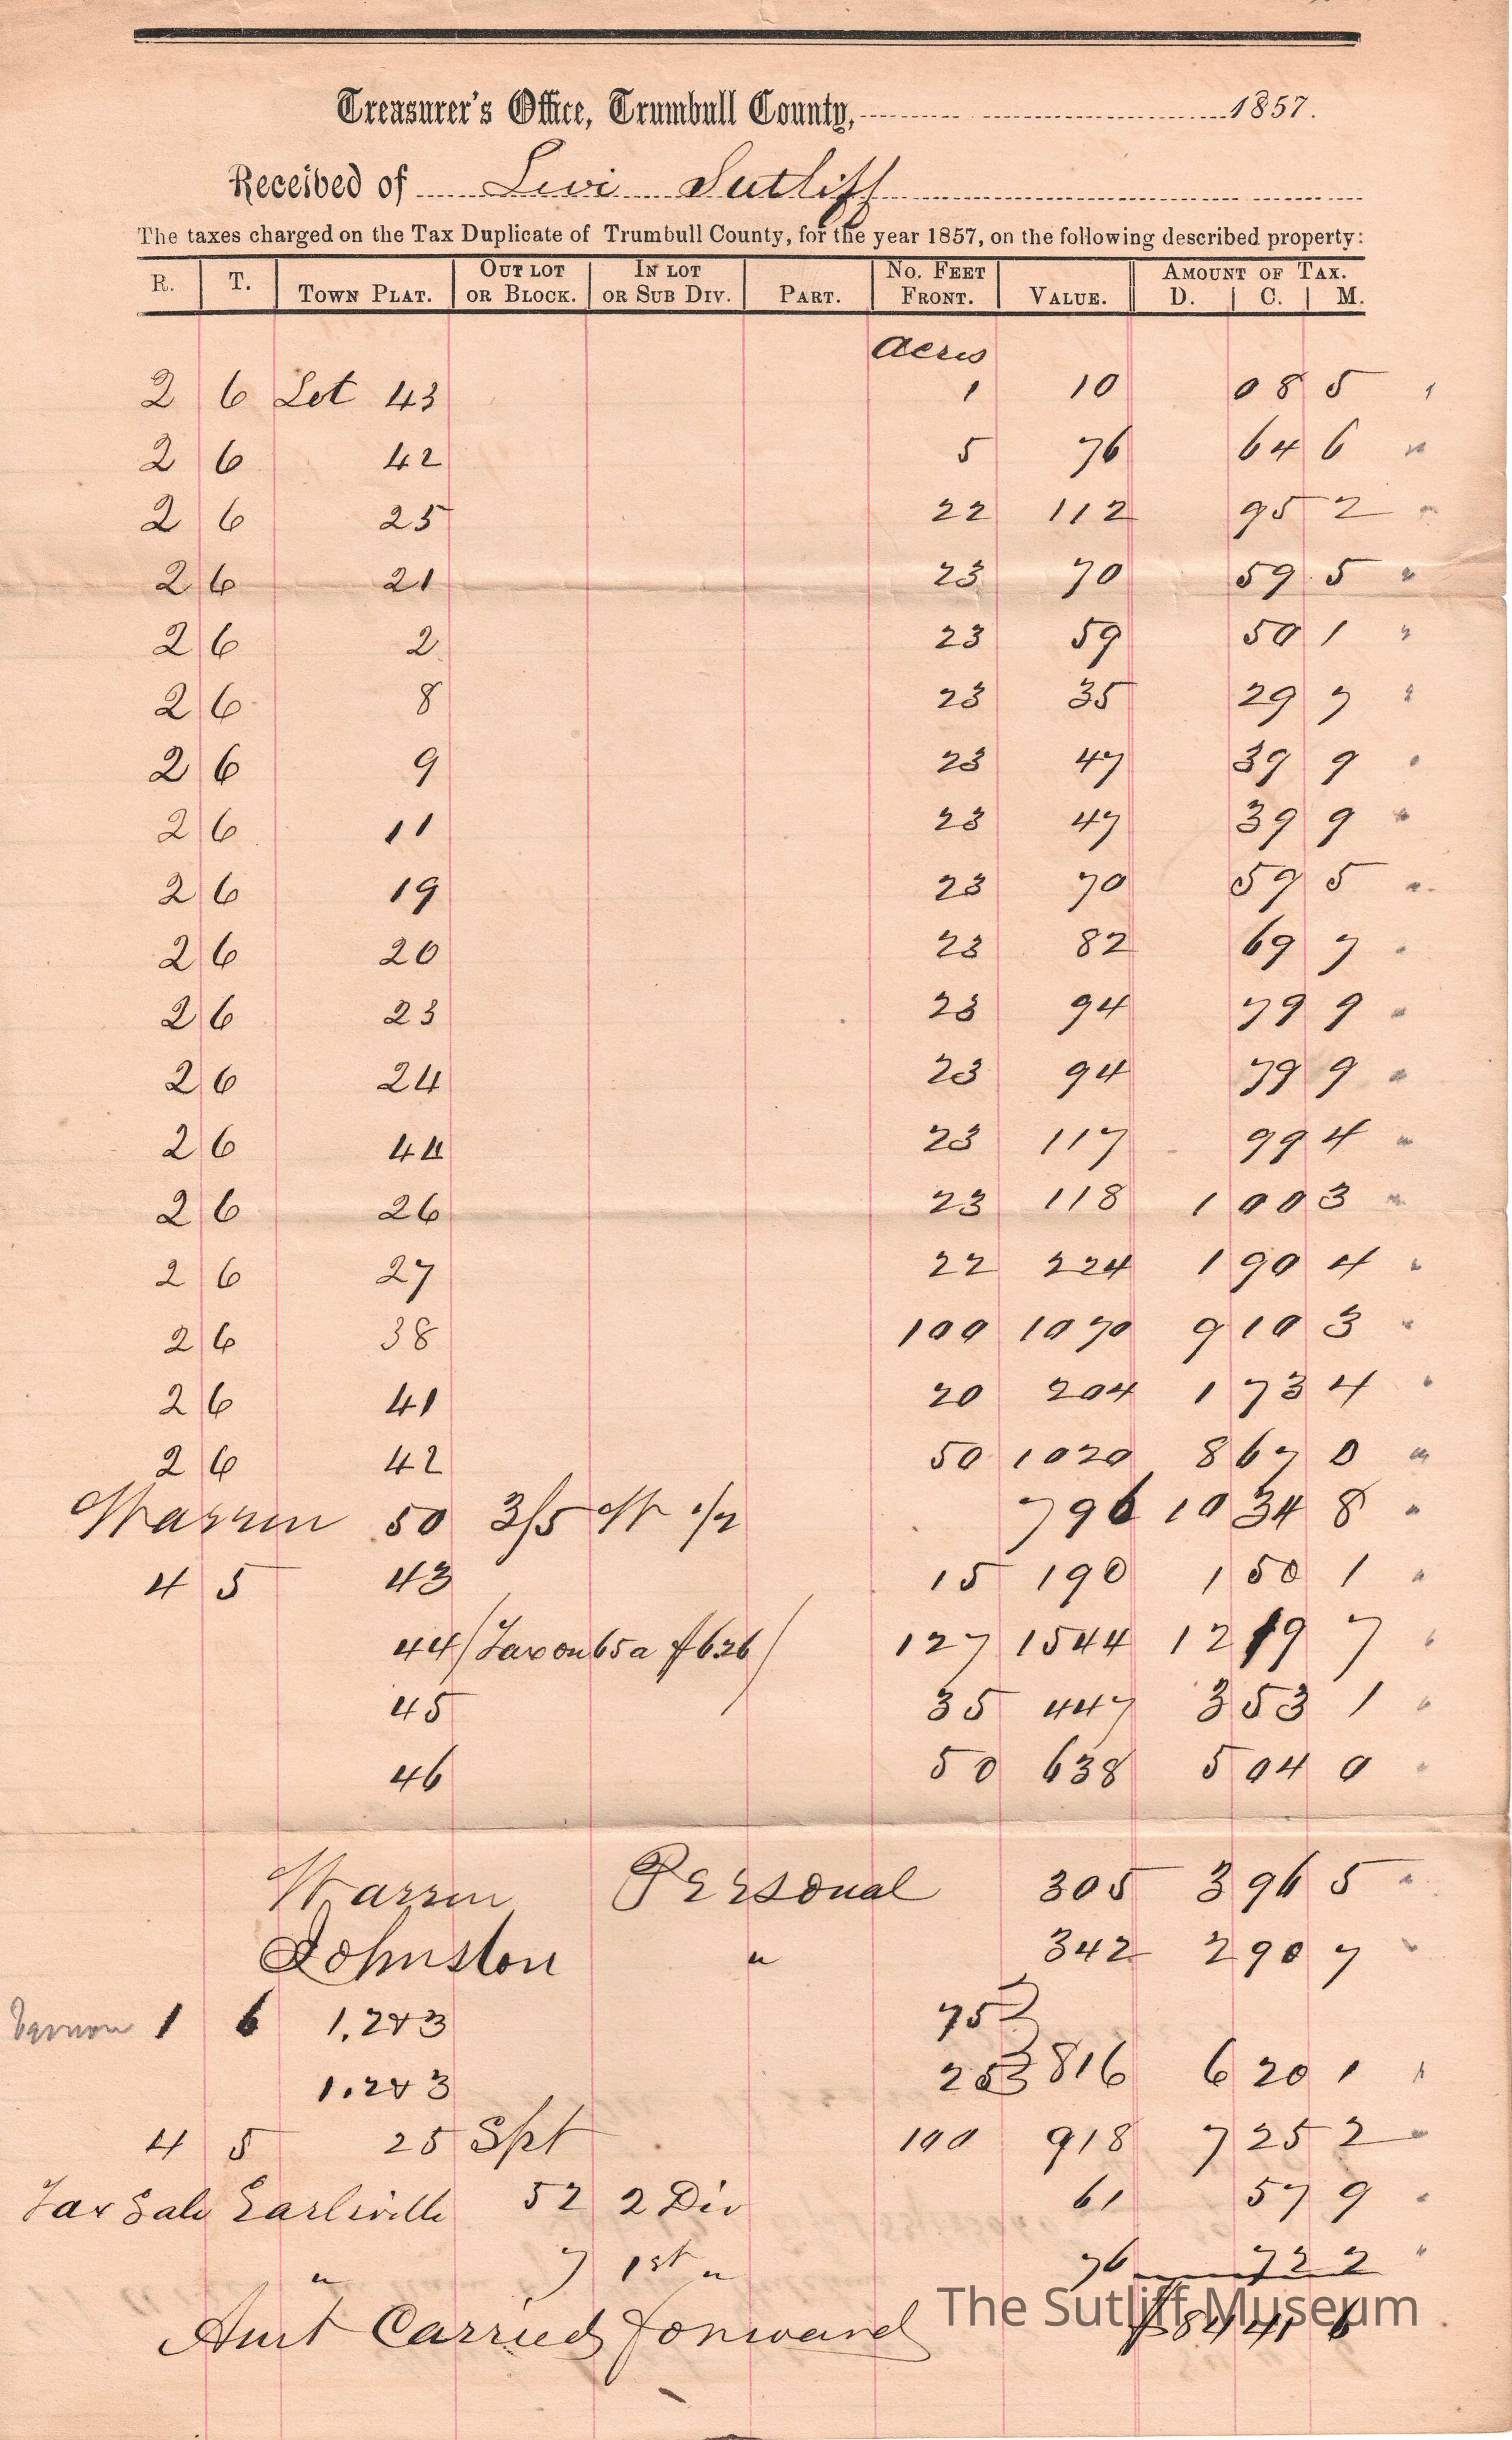 Treasurer's Office, Trumbull County, 1857.
Received of Levi Sutliff
The taxes charged on the Tax Duplicate of Trumbull County, for the year 1857, on the following described property:
R. T. Town Plat. Out lot or Block. In lot or Sub Div. Part. No. Feet Front. Value. Amount of Tax. D. C. M.
Acres
2 6 Lot 43 1 10 08 5 "
2 6 42 5 76 64 6 "
2 6 25 22 112 95 2 "
2 6 21 23 70 59 5 "
2 6 2 23 59 50 1 "
2 6 8 23 35 29 7 "
2 6 9 23 47 39 9 "
2 6 11 23 47 39 9 "
2 6 19 23 70 59 5 "
2 6 20 23 82 69 7 "
2 6 23 23 94 79 9 "
2 6 24 23 94 79 9 "
2 6 44 23 117 99 4 "
2 6 26 23 118 1 00 3 "
2 6 27 22 224 1 90 4 "
2 6 38 100 1070 9 10 3 "
2 6 41 20 204 1 73 4 "
2 6 42 50 1020 8 67 0 "
Warren 50 3/5 W 1/2 796 10 34 8 "
4 5 43 15 190 1 50 1 "
44 (Tax on 65 a $6.26) 127 1544 12 19 7 "
45 35 447 3 53 1 "
46 50 638 5 04 0 "
Warren Personal 305 3 96 5 "
Johnston " 342 2 90 7 "
Vernon 1 6 1.2&3 75
1.2&3 25 816 6 20 1 "
4 5 25 Spt 100 918 7 25 2 "
Tax Sale Earlsville 52 2 Div 61 57 9 "
" 7 1st " 76 72 2 "
Amt Carried forward $84 41 6
The Sutliff Museum